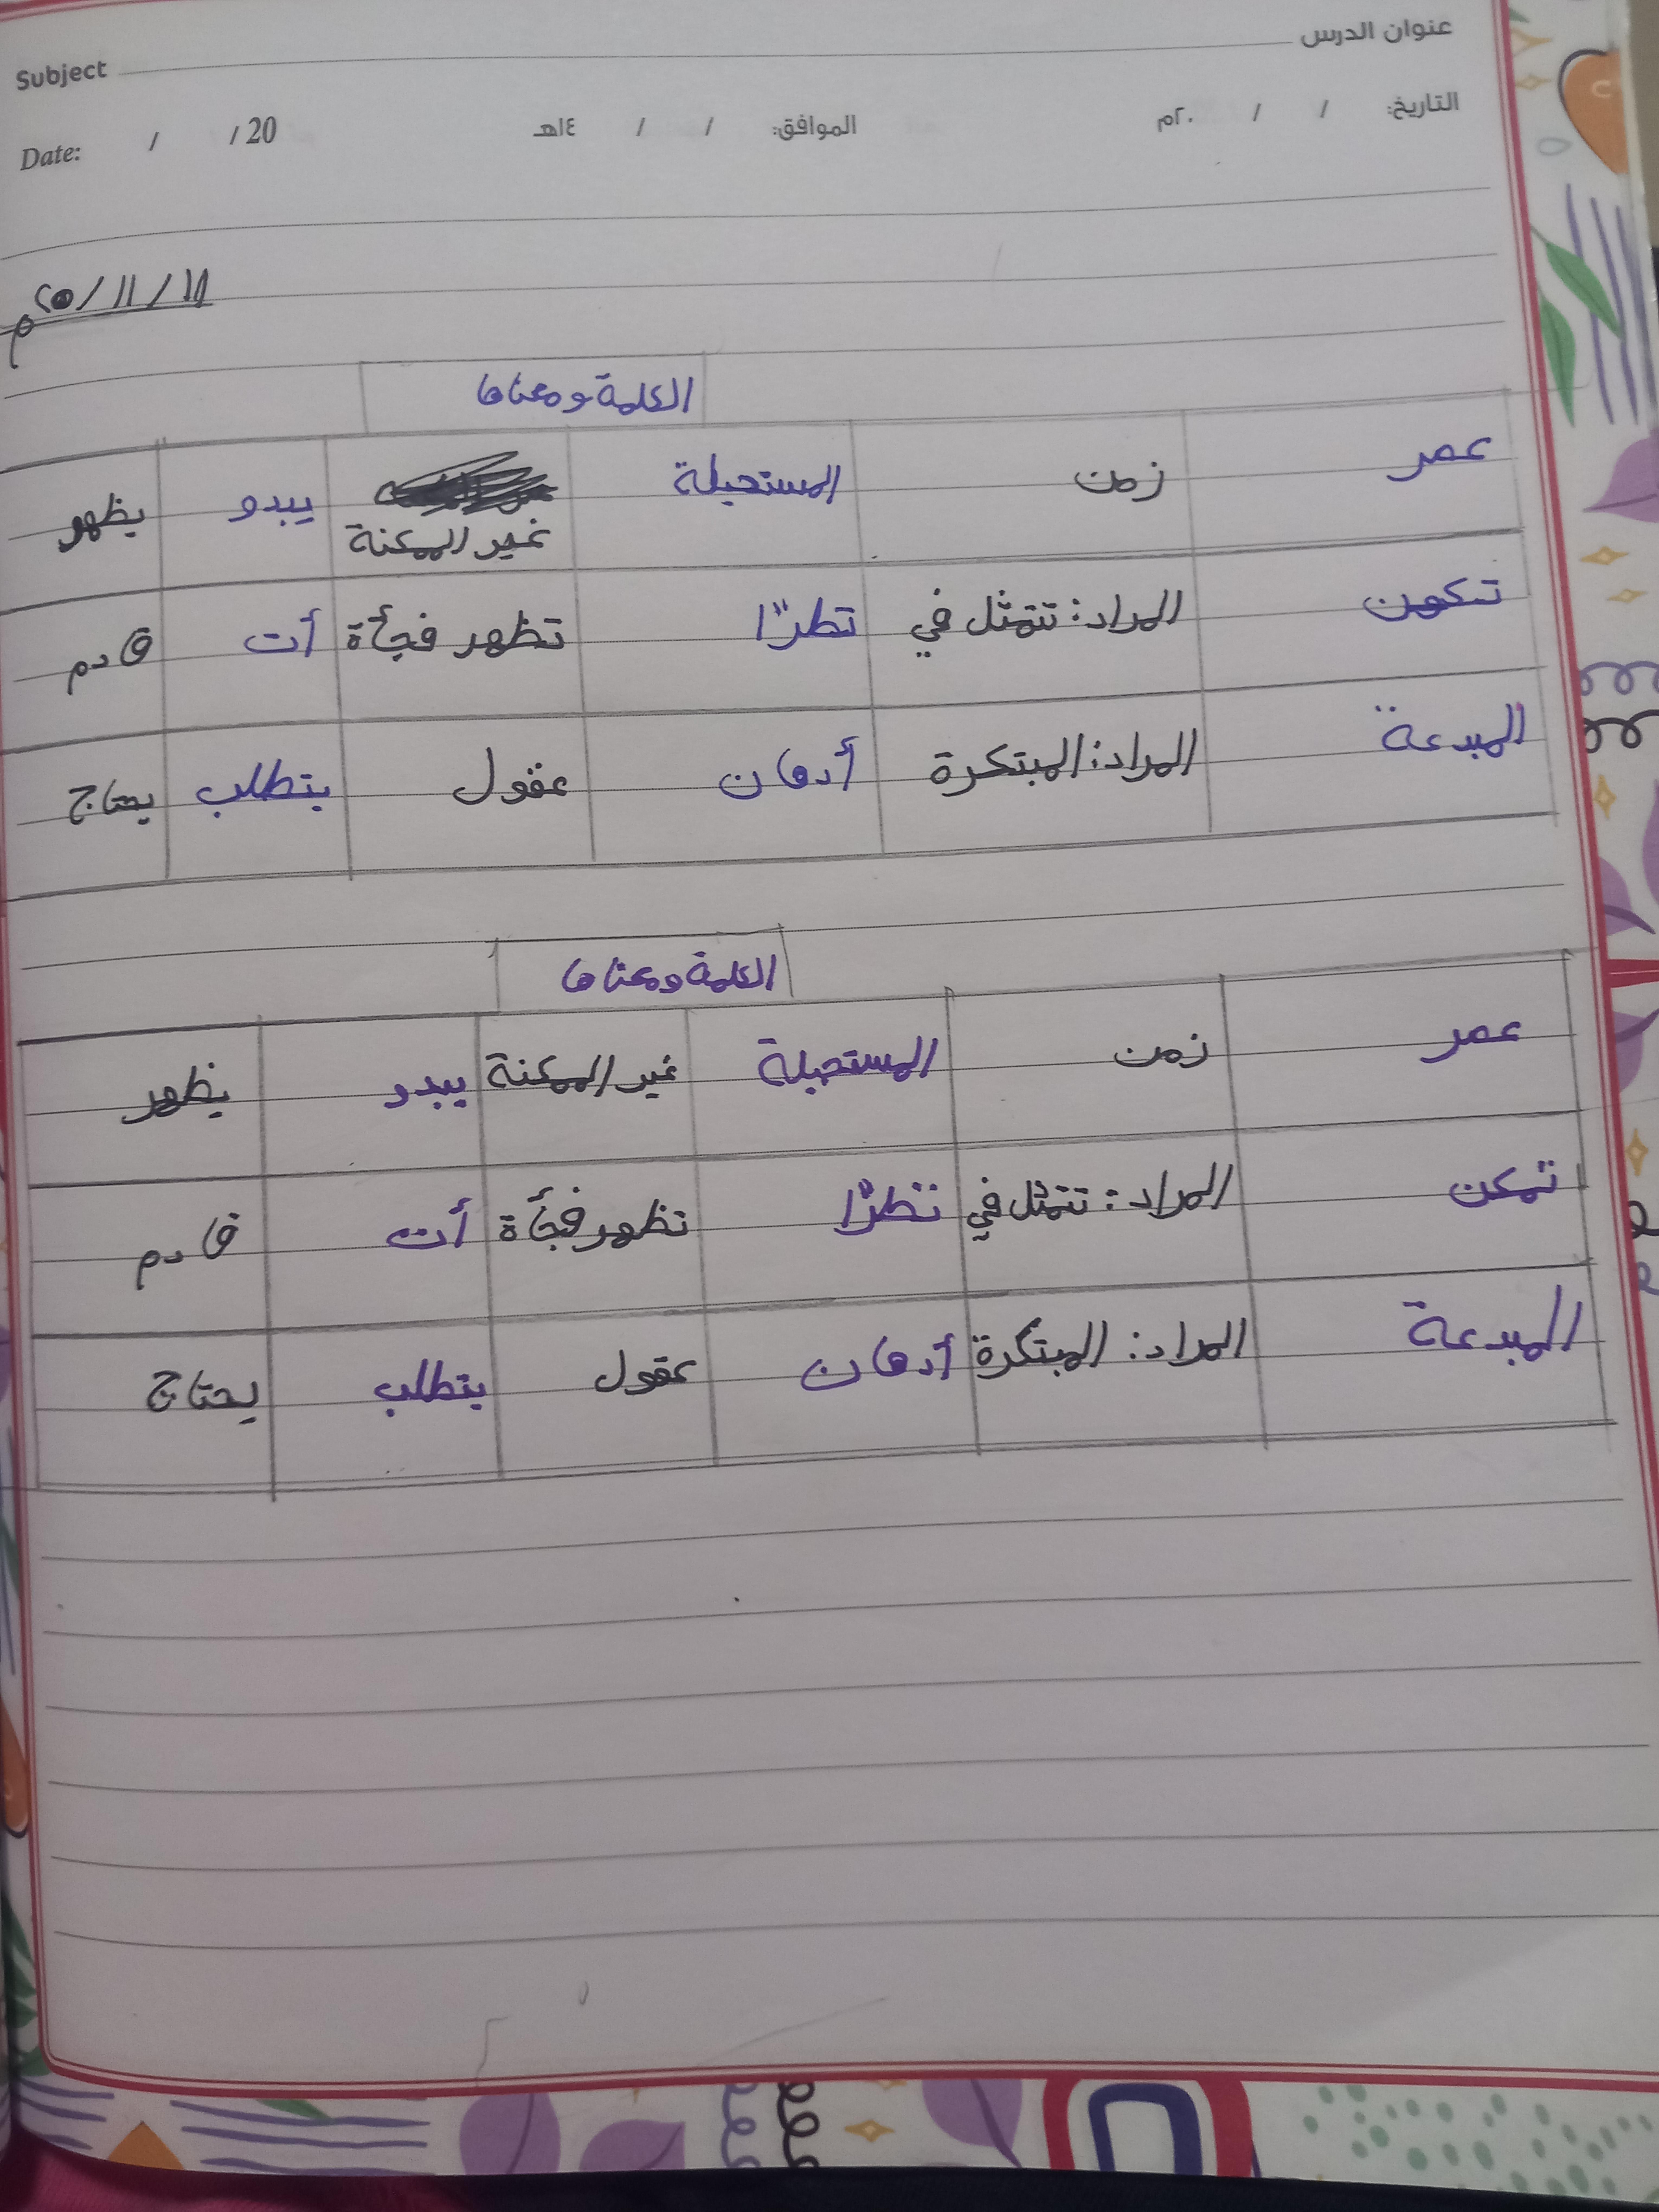 عنوان الدرس Subject
التاريخ: / / ٢٠م الموافق: / / ١٤هـ Date: / / 20
م٢٥/١١/١١
الكلمة ومعناها
عصر زمن المستحيلة يبدو يظهر
غير الممكنة
تكمن المراد: تتمثل في تطرّا تظهر فجأة أت قادم
المبدعة المراد: المبتكرة أذهان عقول يتطلب يحتاج
الكلمة ومعناها
عصر زمن المستحيلة غير الممكنة يبدو يظهر
تمكن المراد: تتمثل في تظرّا تظهر فجأة أت قادم
المبدعة المراد: المبتكرة أذهان عقول يتطلب يحتاج